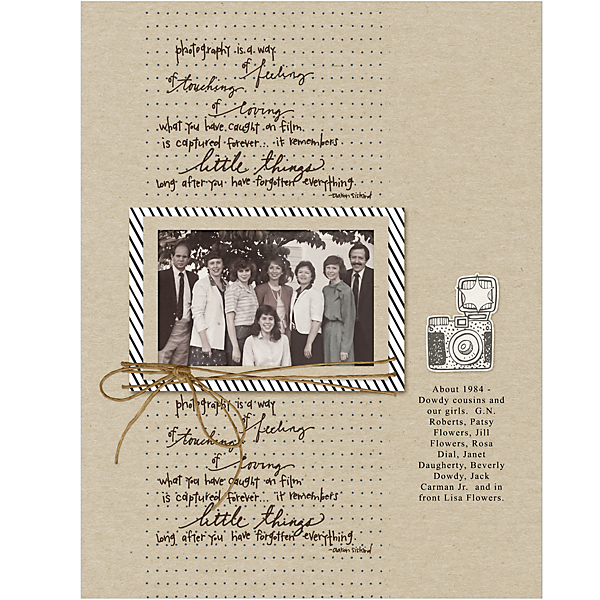 photography is a way
of feeling
of touching
of loving
what you have caught on film
is captured forever... it remembers
little things
long after you have forgotten everything.
-aaron siskind
photography is a way
of feeling
of touching
of loving
what you have caught on film
is captured forever... it remembers
little things
long after you have forgotten everything.
-aaron siskind
About 1984 -
Dowdy cousins and
our girls. G.N.
Roberts, Patsy
Flowers, Jill
Flowers, Rosa
Dial, Janet
Daugherty, Beverly
Dowdy, Jack
Carman Jr. and in
front Lisa Flowers.